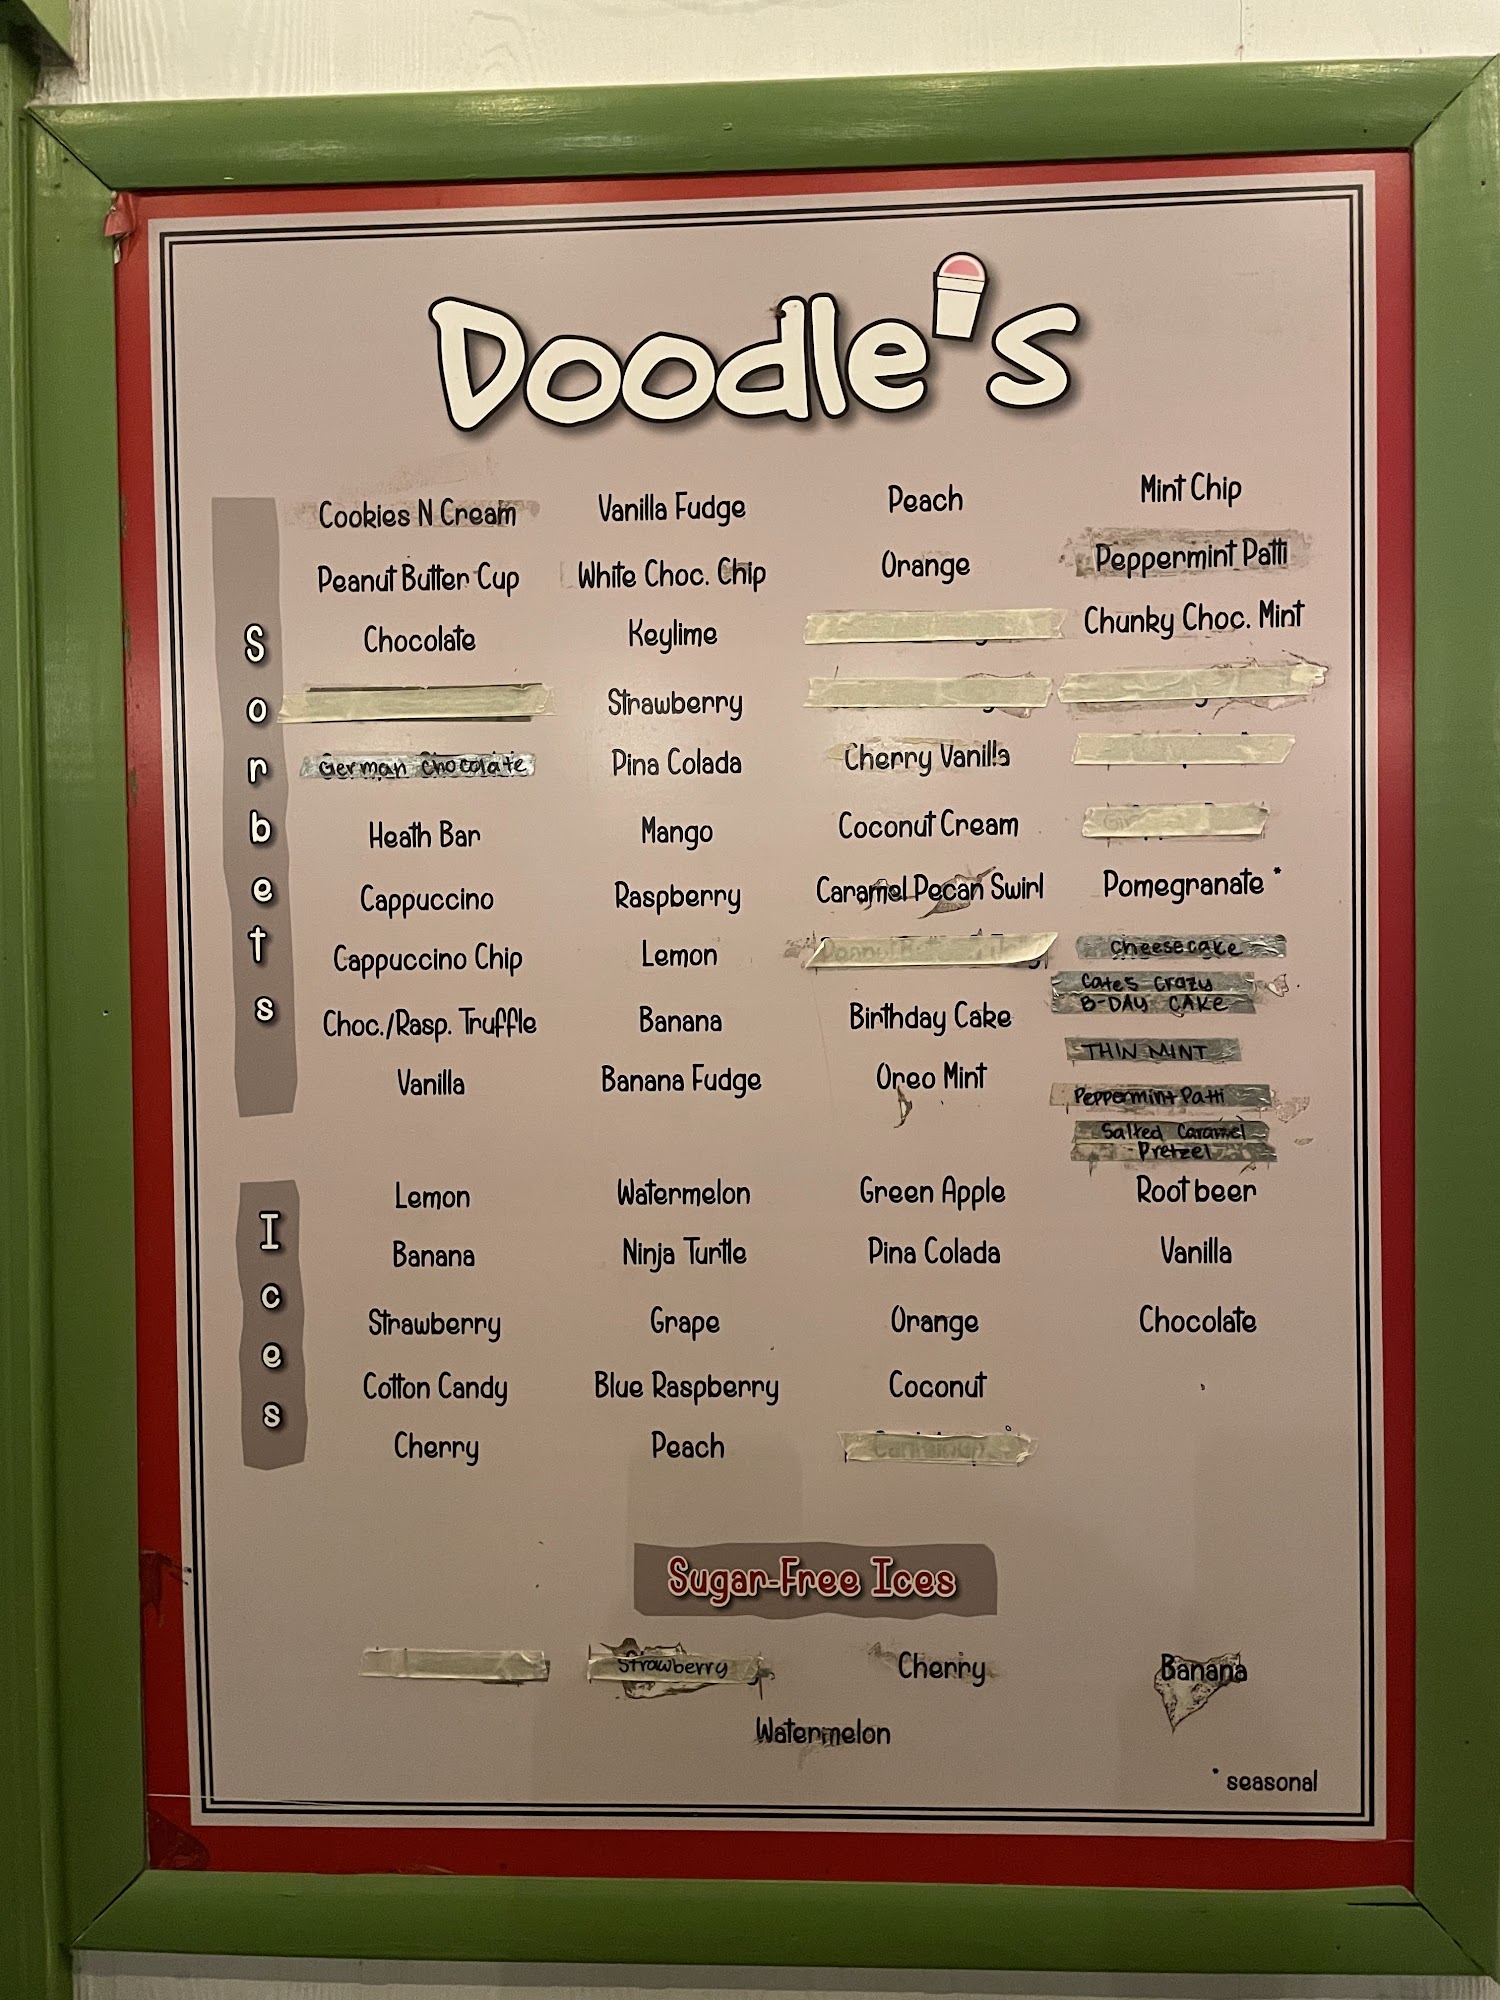 Doodle's
Sorbets
Cookies N Cream
Peanut Butter Cup
Chocolate
German Chocolate
Heath Bar
Cappuccino
Cappuccino Chip
Choc./Rasp. Truffle
Vanilla
Vanilla Fudge
White Choc. Chip
Keylime
Strawberry
Pina Colada
Mango
Raspberry
Lemon
Banana
Banana Fudge
Peach
Orange
Cherry Vanilla
Coconut Cream
Caramel Pecan Swirl
Birthday Cake
Oreo Mint
Mint Chip
Peppermint Patti
Chunky Choc. Mint
Pomegranate *
cheesecake
Cate's Crazy
B-DAY CAKE
THIN MINT
Peppermint Patti
Salted Caramel
Pretzel
Ices
Lemon
Banana
Strawberry
Cotton Candy
Cherry
Watermelon
Ninja Turtle
Grape
Blue Raspberry
Peach
Green Apple
Pina Colada
Orange
Coconut
Root beer
Vanilla
Chocolate
Sugar-Free Ices
Strawberry
Cherry
Banana
Watermelon
* seasonal